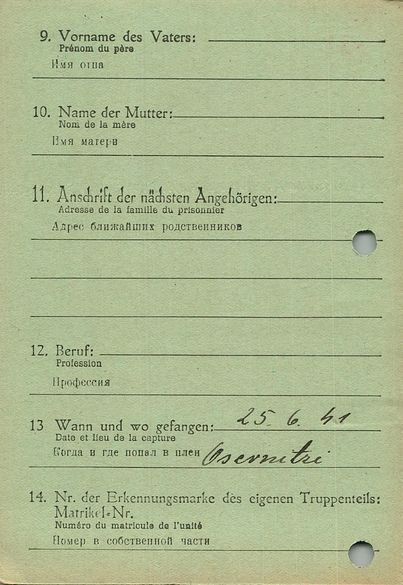 9. Vorname des Vaters:
Prénom du père
Имя отца
10. Name der Mutter:
Nom de la mère
Имя матери
11. Anschrift der nächsten Angehörigen:
Adresse de la famille du prisonnier
Адрес ближайших родственников
12. Beruf:
Profession
Профессия
13 Wann und wo gefangen: 25. 6. 41
Date et lieu de la capture
Когда и где попал в плен Osernitzi
14. Nr. der Erkennungsmarke des eigenen Truppenteils:
Matrikel-Nr.
Numéro du matricule de l'unité
Номер в собственной части